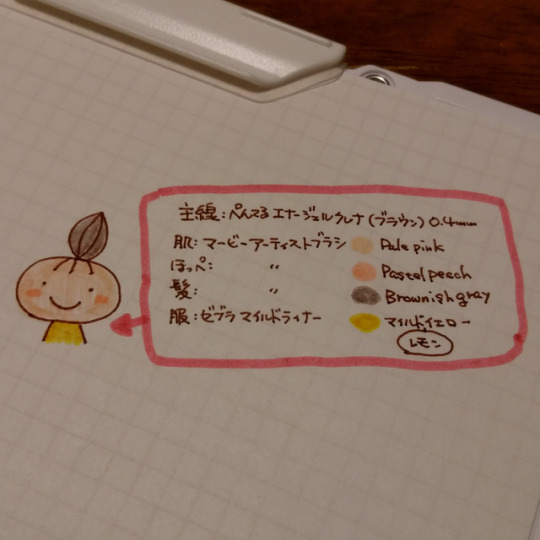 主線：ぺんてる エナージェル クレナ (ブラウン) 0.4mm
肌：マービーアーティストブラシ Pale pink
ほっぺ： 〃 Pastel peech
髪： 〃 Brownish gray
服：ゼブラ マイルドライナー マイルドイエロー
レモン